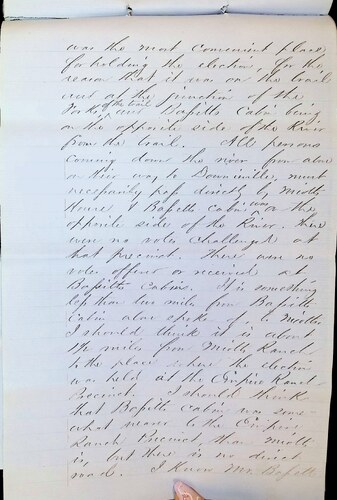 was the most convenient place
for holding the election, for the
reason that it was on the trail
and at the junction of the
forks of the trail, and Bassetts Cabin being
on the opposite side of the River
from the trail. All persons
coming down the river from above
on their way to Downieville, must
necessarily pass directly by
House & Bassetts cabin was on the
opposite side of the River. There
were no votes challenged at
that precinct. There were no
votes offered or received at
Bassetts Cabin. It is something
less than two miles from Bassetts
Cabin above spoke of a
I should think it is about
1½ miles from Ranch
to the place where the election
was held at the Empire Ranch
Precinct I should think
that Bassetts Cabin was some-
what nearer to the Empire
Ranch Precinct, than
is, but there is no direct
road. I know Mr. Bassett